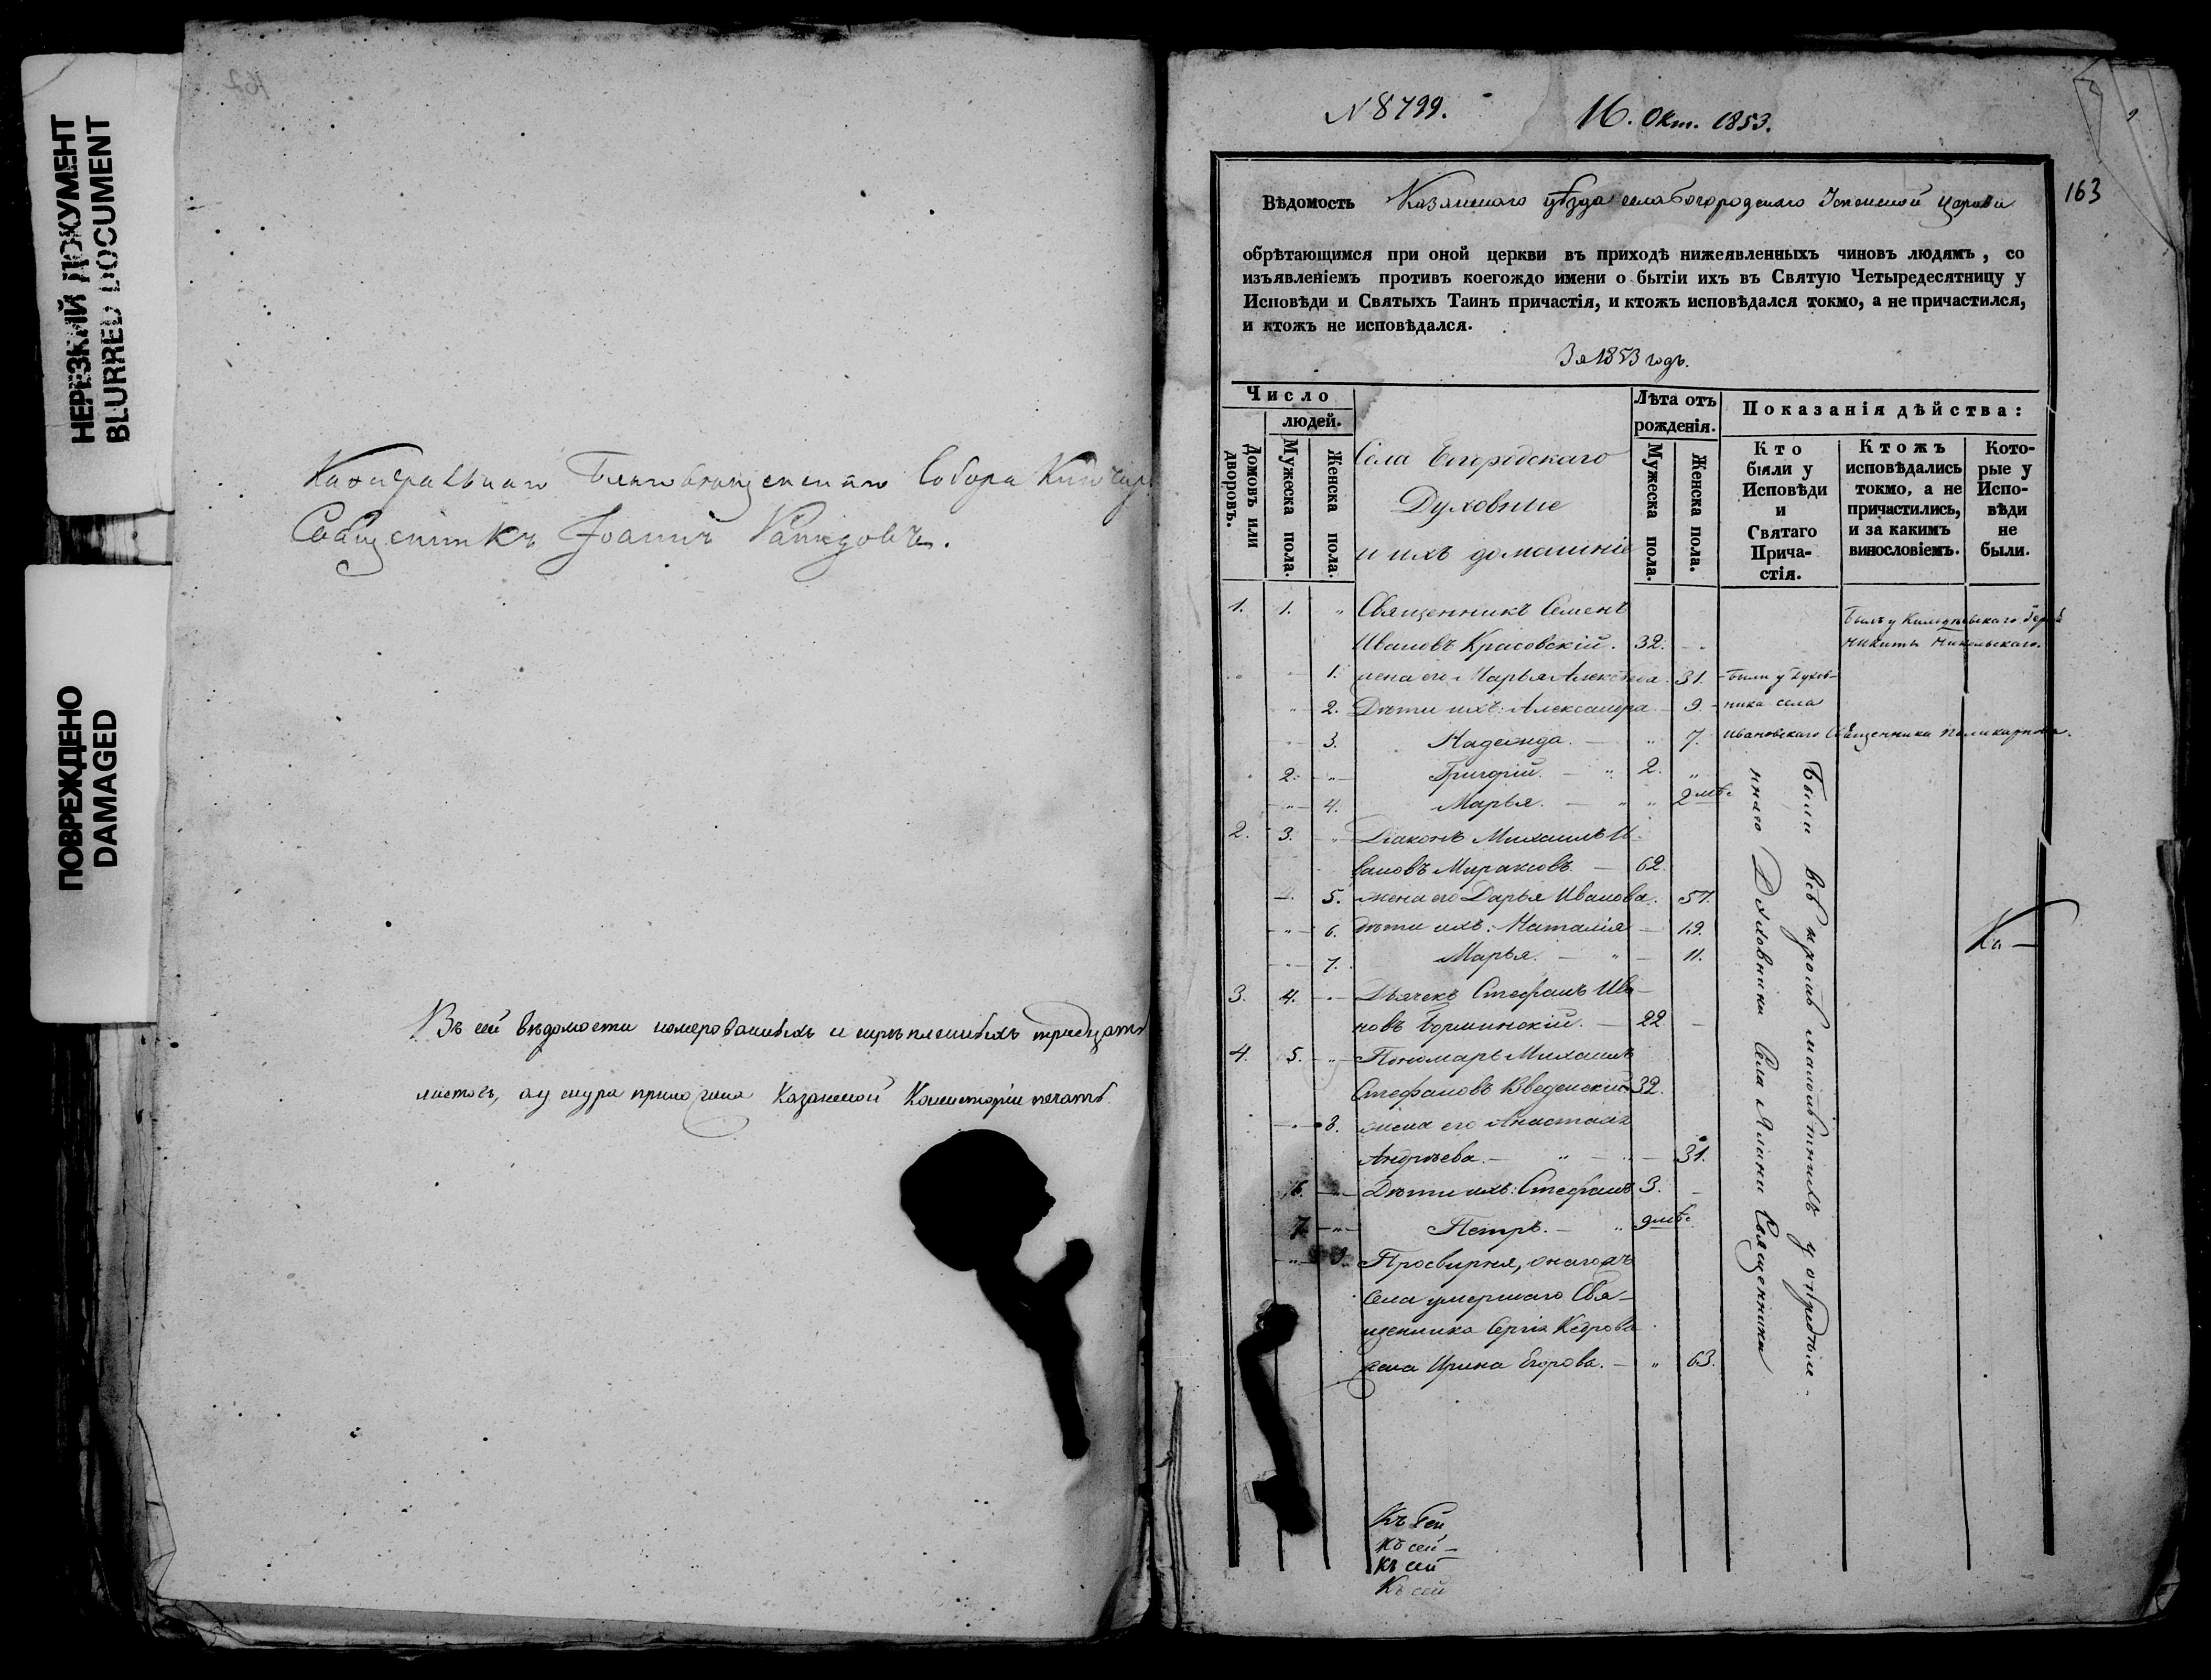 НЕРЕЗКИЙ ДОКУМЕНТ
BLURRED DOCUMENT
ПОВРЕЖДЕНО
DAMAGED
162
Каѳедральнаго Благовѣщенскаго Собора
Священникъ Іоаннъ
Въ сей вѣдомости номерованныхъ и скрѣпленныхъ тридцать
листовъ, а у снура приложена Казанской Консисторіи печать.
N 8799. 16. Окт. 1853.
163
Вѣдомость Казанскаго уѣзда села Богородскаго Успенской церкви
обрѣтающимся при оной церкви въ приходѣ нижеявленныхъ чиновъ людямъ, со
изъявленіемъ противъ коегождо имени о бытіи ихъ въ Святую Четыредесятницу у
Исповѣди и Святыхъ Таинъ причастія, и ктожъ исповѣдался токмо, а не причастился,
и ктожъ не исповѣдался.
За 1853 годъ.
Число
людей.
Домовъ или дворовъ.
Мужеска пола.
Женска пола.
Села
Духовные
и ихъ домашніе
Лѣта отъ
рожденія.
Мужеска пола.
Женска пола.
Показанія дѣйства:
Кто
были у
Исповѣди
и
Святаго
Прича-
стія.
Ктожъ
исповѣдались
токмо, а не
причастились,
и за какимъ
винословіемъ.
Кото-
рые у
Испо-
вѣди
не
были.
1. 1. " Священникъ Семенъ
Ивановъ Красовскій. 32. Былъ у
Никиты Никольскаго.
1. жена его Марья 31. Были у Духов-
2. Дѣти ихъ: Александра 9. ника села
3. Надежда. — " 7. Ивановскаго Священника Поликарпова.
2. " Григорій. — " 2. "
" 4. Марья. — " " 2 мѣс.
2. 3. Діаконъ Михаилъ И-
вановъ — 62.
5. жена его Дарья Иванова. 57.
" 6. дѣти ихъ: Наталія — 19.
" 7. Марья. — " — 11.
3. 4. " Дьячекъ Стефанъ Ива-
новъ — 22. —
4. 5. " Пономарь Михаилъ
Стефановъ Введенскій 32.
" 8. жена его Анастасія
Андреева. — " — 31.
6. " Дѣти ихъ: Стефанъ 3. —
7. " Петръ. — " 9 мѣс.
" 9. Просвирня, онагожъ
села умершаго Свя-
щенника Сергія Кедрова
жена Ирина Егорова. — " 63.
Были всѣ кромѣ малолѣтнихъ у опредѣле-
ннаго Духовника села Священника
Ка—
Къ сей
Къ сей —
Къ сей
Къ сей